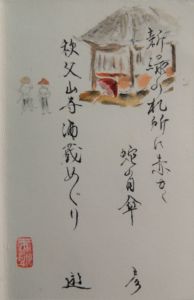 新緑の札所に赤き
蛇の目傘
彦
秩父山寺酒蔵めぐり
遊